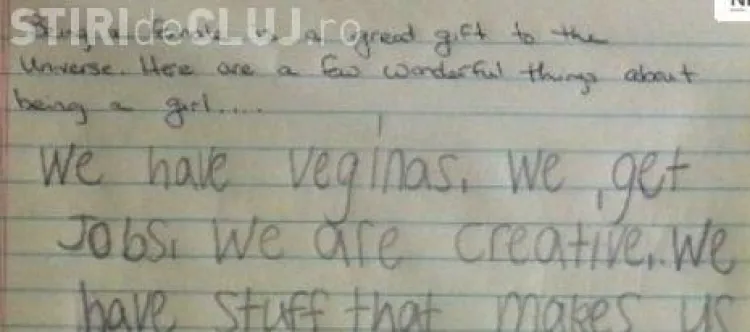 STIRIdeCLUJ.ro
Being a female is a great gift to the
Universe. Here are a few wonderful things about
being a girl.....
We have veginas. We get
Jobs. We are creative. We
have stuff that makes us